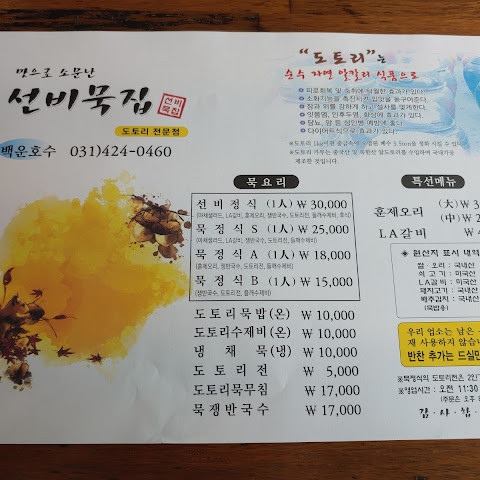 맛으로 소문난
선비묵집
선비
묵집
도토리 전문점
백운호수 031)424-0460
"도토리"는
순수 자연 알칼리 식품으로
피로회복 및 숙취에 탁월한 효과가 있다.
소화기능을 촉진시켜 입맛을 돋구어준다.
장과 위를 강하게 하고 설사를 멎게한다.
잇몸염, 인후두염, 화상에 효과가 있다.
당뇨, 암 등 성인병 예방에 좋다.
다이어트식으로 효과가 있다.
묵요리
선비정식 (1人) ₩30,000
묵정식 S (1人) ₩25,000
묵정식 A (1人) ₩18,000
(훈제오리, 쟁반국수, 도토리전, 들깨수제비)
묵정식 B (1人) ₩15,000
(쟁반국수, 도토리전, 들깨수제비)
도토리묵밥(온) ₩10,000
도토리수제비(온) ₩10,000
냉채묵(냉) ₩10,000
도토리전 ₩5,000
도토리묵무침 ₩17,000
묵쟁반국수 ₩17,000
특선메뉴
훈제오리 (大) ₩3
(中) ₩2
LA갈비
※원산지 표시 내역
쌀·오리 : 국내산
쇠고기 : 미국산
LA갈비 : 미국산
돼지고기 : 국내산
배추김치 : 국내산
(묵밥용)
우리 업소는 남은
재 사용하지 않습
반찬 추가는 드실만
※묵정식의 도토리전은 2인
※영업시간 : 오전 11:30
(주문은 오후 8
감·사·합